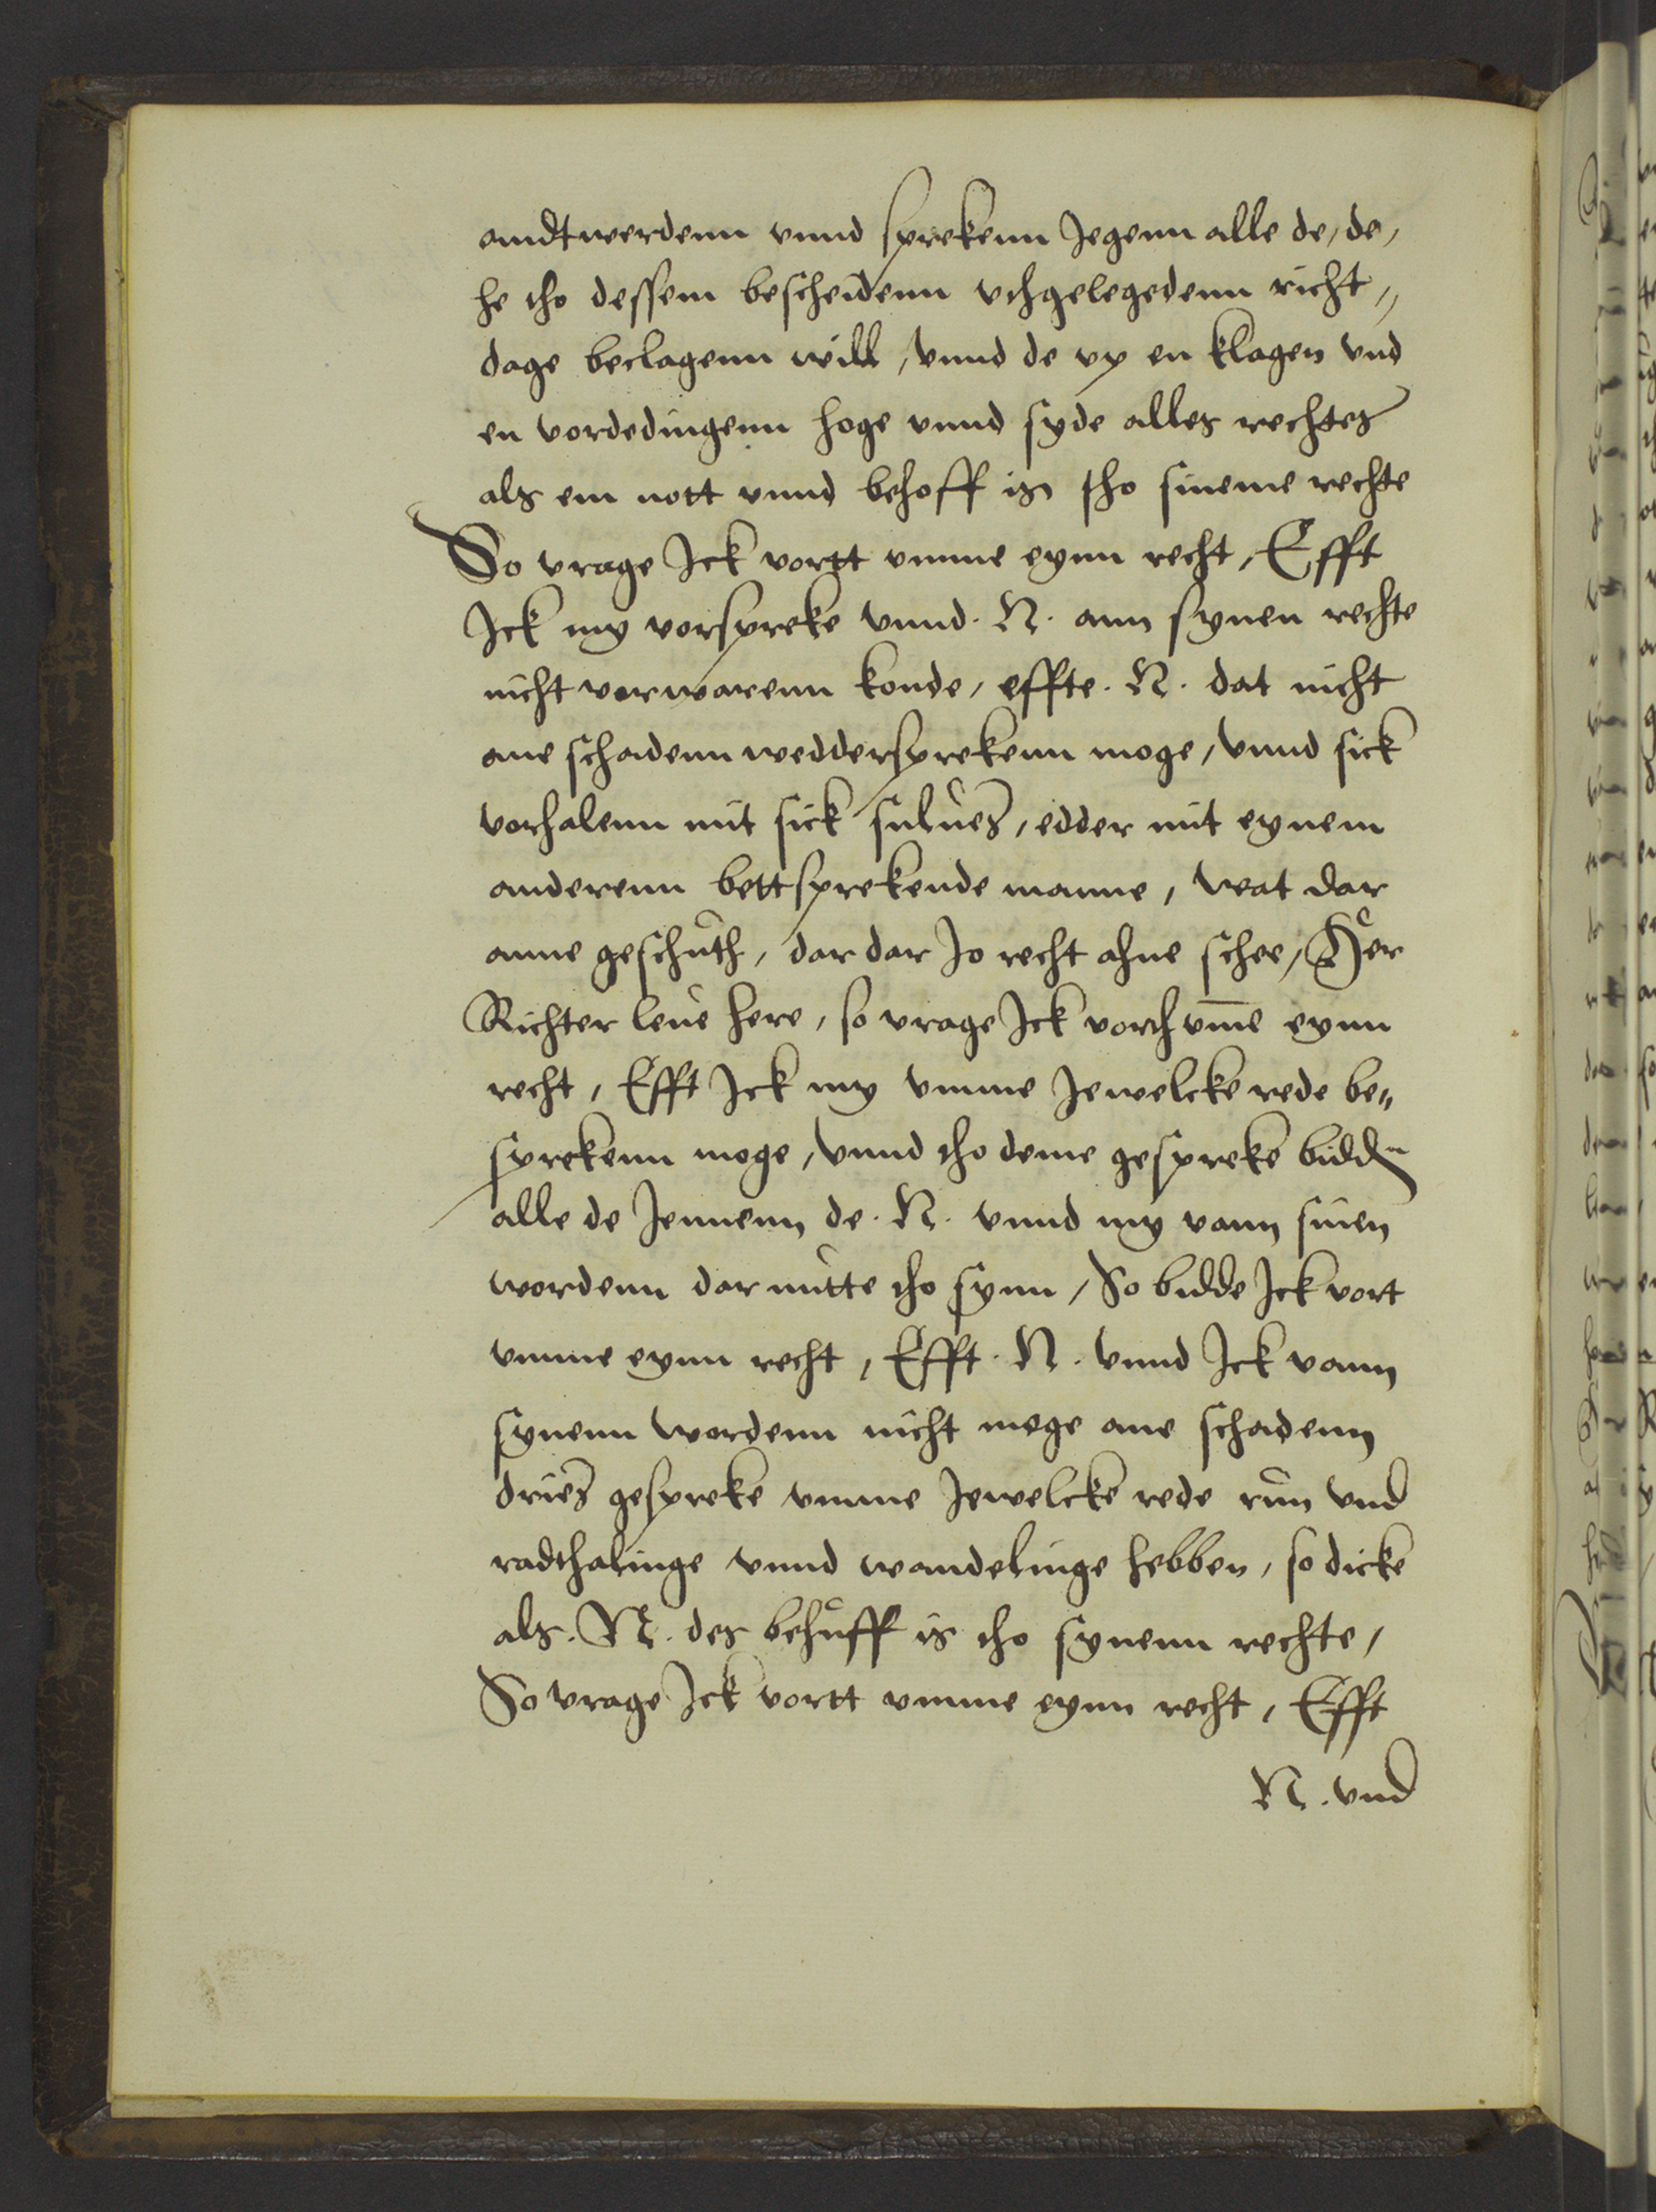 andtwerdenn vnnd sprekenn Jegenn alle de, de,
he tho dessem bescheidenn vthgelegedenn richt„
dage beclagenn will, vnnd de vp en klagen vnd
en vordedingenn hoge vnnd syde alles rechtes
als em nott vnnd behoff is tho sineme rechte
So vrage Ick vortt vmme eynn recht, Efft
Ick my vorspreke vnnd. N. ann synen rechte
nicht vorwarenn konde, effte. N. dat nicht
ane schadenn weddersprekenn moge, vnnd sick
vorhalenn mit sick sulues, edder mit eynem
anderenn bettsprekende manne, wat dar
anne geschuth, dar dar Jo recht ahne schee, Her
Richter leue here, so vrage Ick vorth vm̄e eynn
recht, Efft Ick my vmme Jewelcke rede be„
sprekenn moge, vnnd tho deme gespreke bidden
alle de Jennenn de. N. vnnd my vann sinen
wordenn dar nutte tho synn, So bidde Ick vort
vmme eynn recht, Efft. N. vnnd Ick vann
synenn wordenn nicht moge ane schadenn
dries gespreke vmme Jewelcke rede run vnd
radthalinge vnnd wandelinge hebben, so dicke
als. N. des behuff is tho synenn rechte,
So vrage Ick vortt vmme eynn recht, Efft
N. vnd